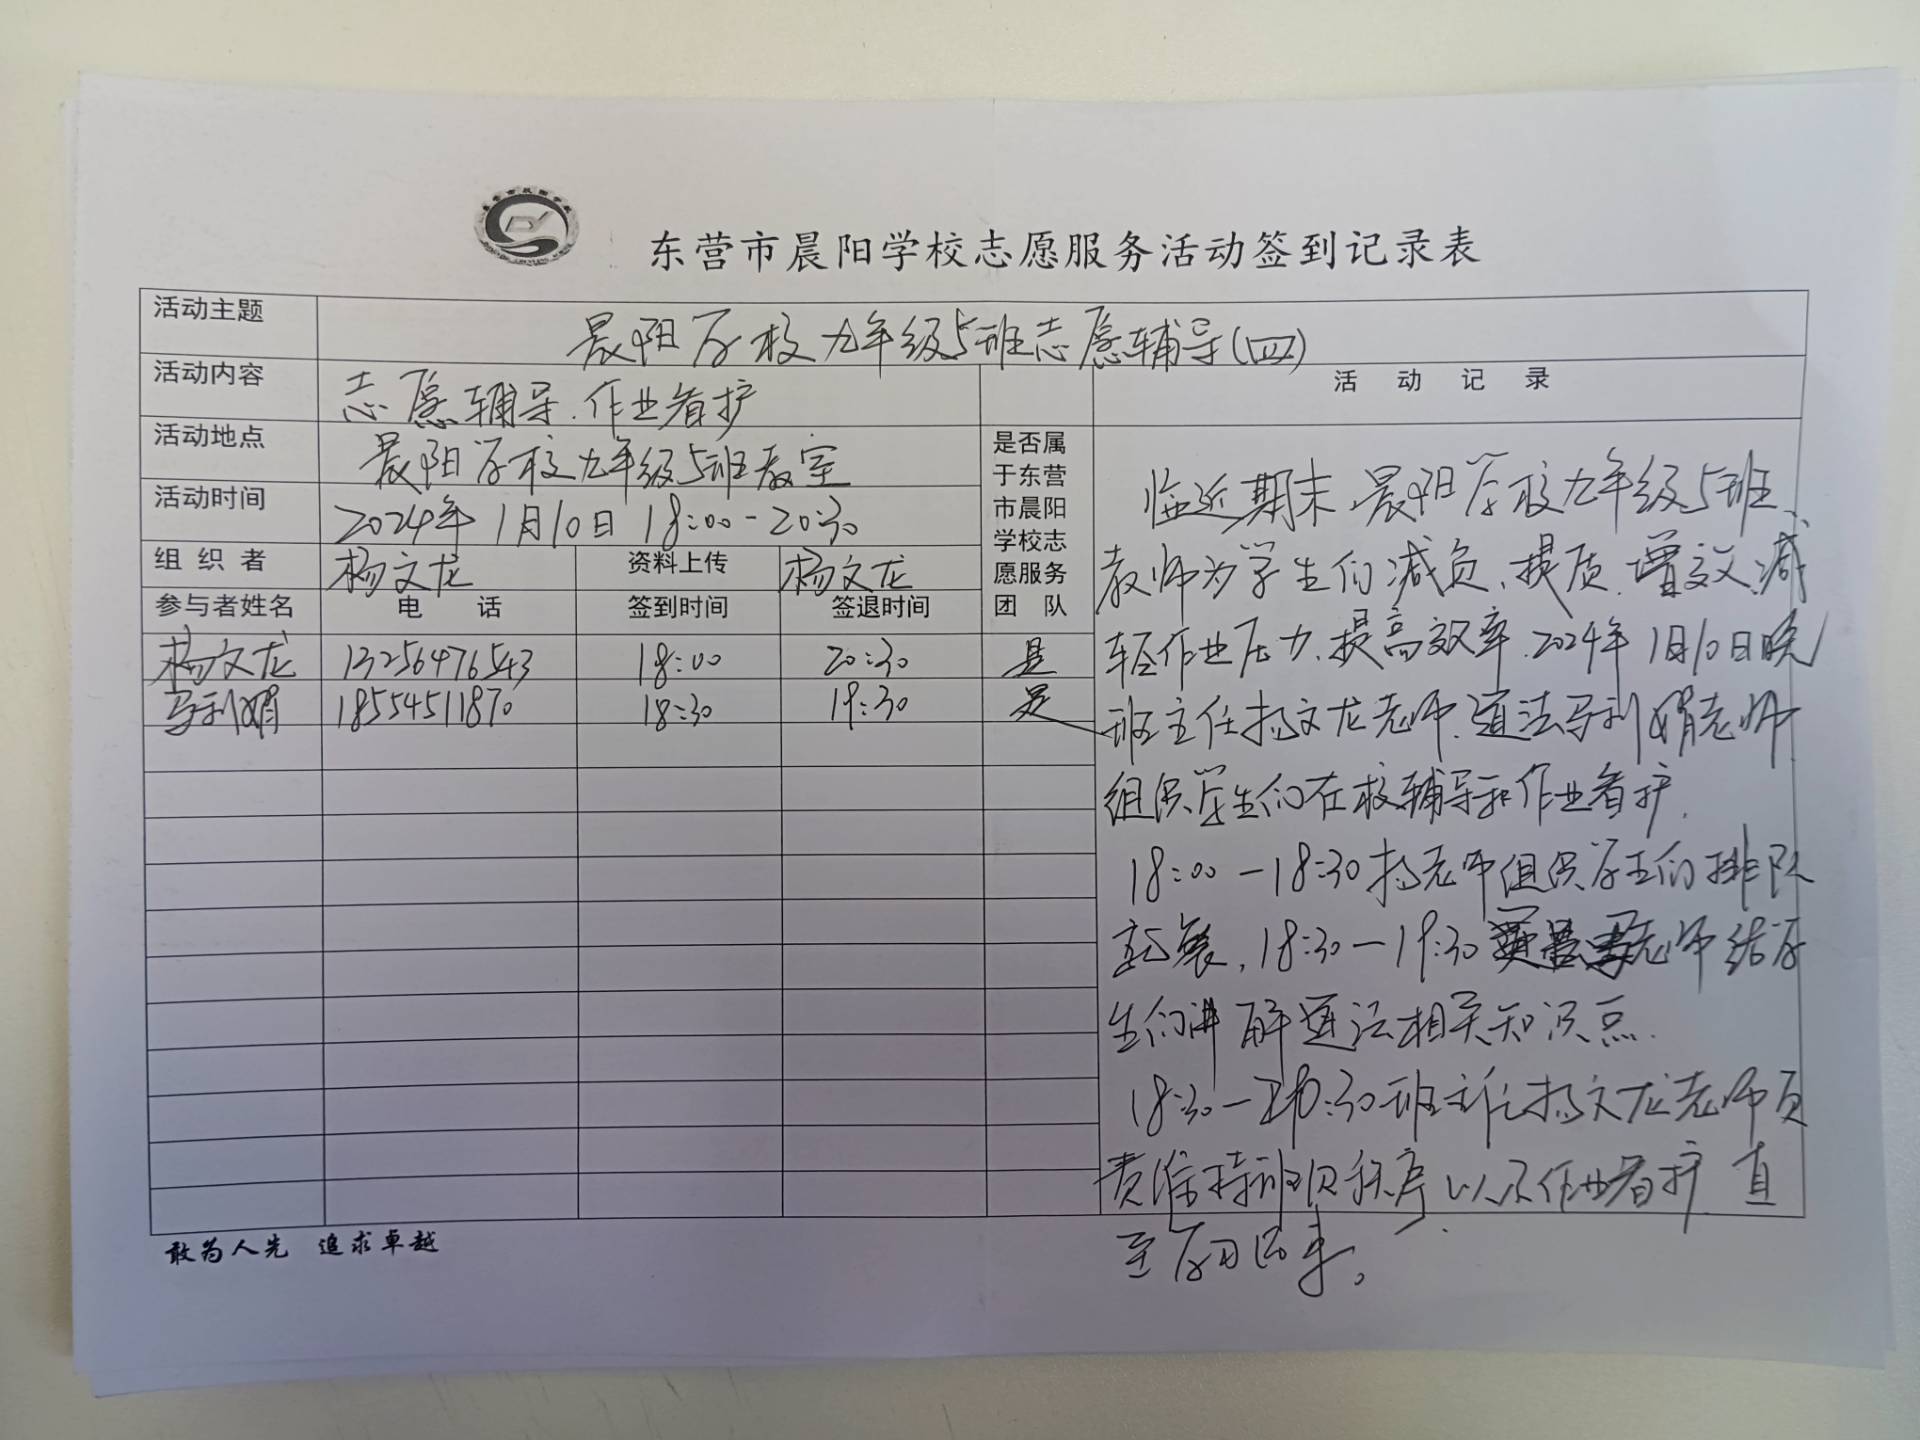 东营市晨阳学校志愿服务活动签到记录表
活动主题 晨阳学校九年级5班志愿辅导(四)
活动内容 志愿辅导、作业看护
活动地点 晨阳学校九年级5班教室
活动时间 2024年1月10日 18:00-20:30
组织者 杨文龙 资料上传 杨文龙
参与者姓名 电话 签到时间 签退时间
是否属
于东营
市晨阳
学校志
愿服务
团队
杨文龙 13256476543 18:00 20:30 是
马利娟 18554511870 18:30 19:30 是
活动记录
临近期末,晨阳学校九年级5班
教师为学生们减负、提质、增效,减
轻作业压力、提高效率.2024年1月10日晚
班主任杨文龙老师、道法马利娟老师
组织学生们在校辅导和作业看护.
18:00-18:30杨老师组织学生们排队
就餐,18:30-19:30 老师给学
生们讲解道法相关知识点.
18:30-20:30班主任杨文龙老师负
责维持班级秩序,以及作业看护,直
至
敢为人先 追求卓越